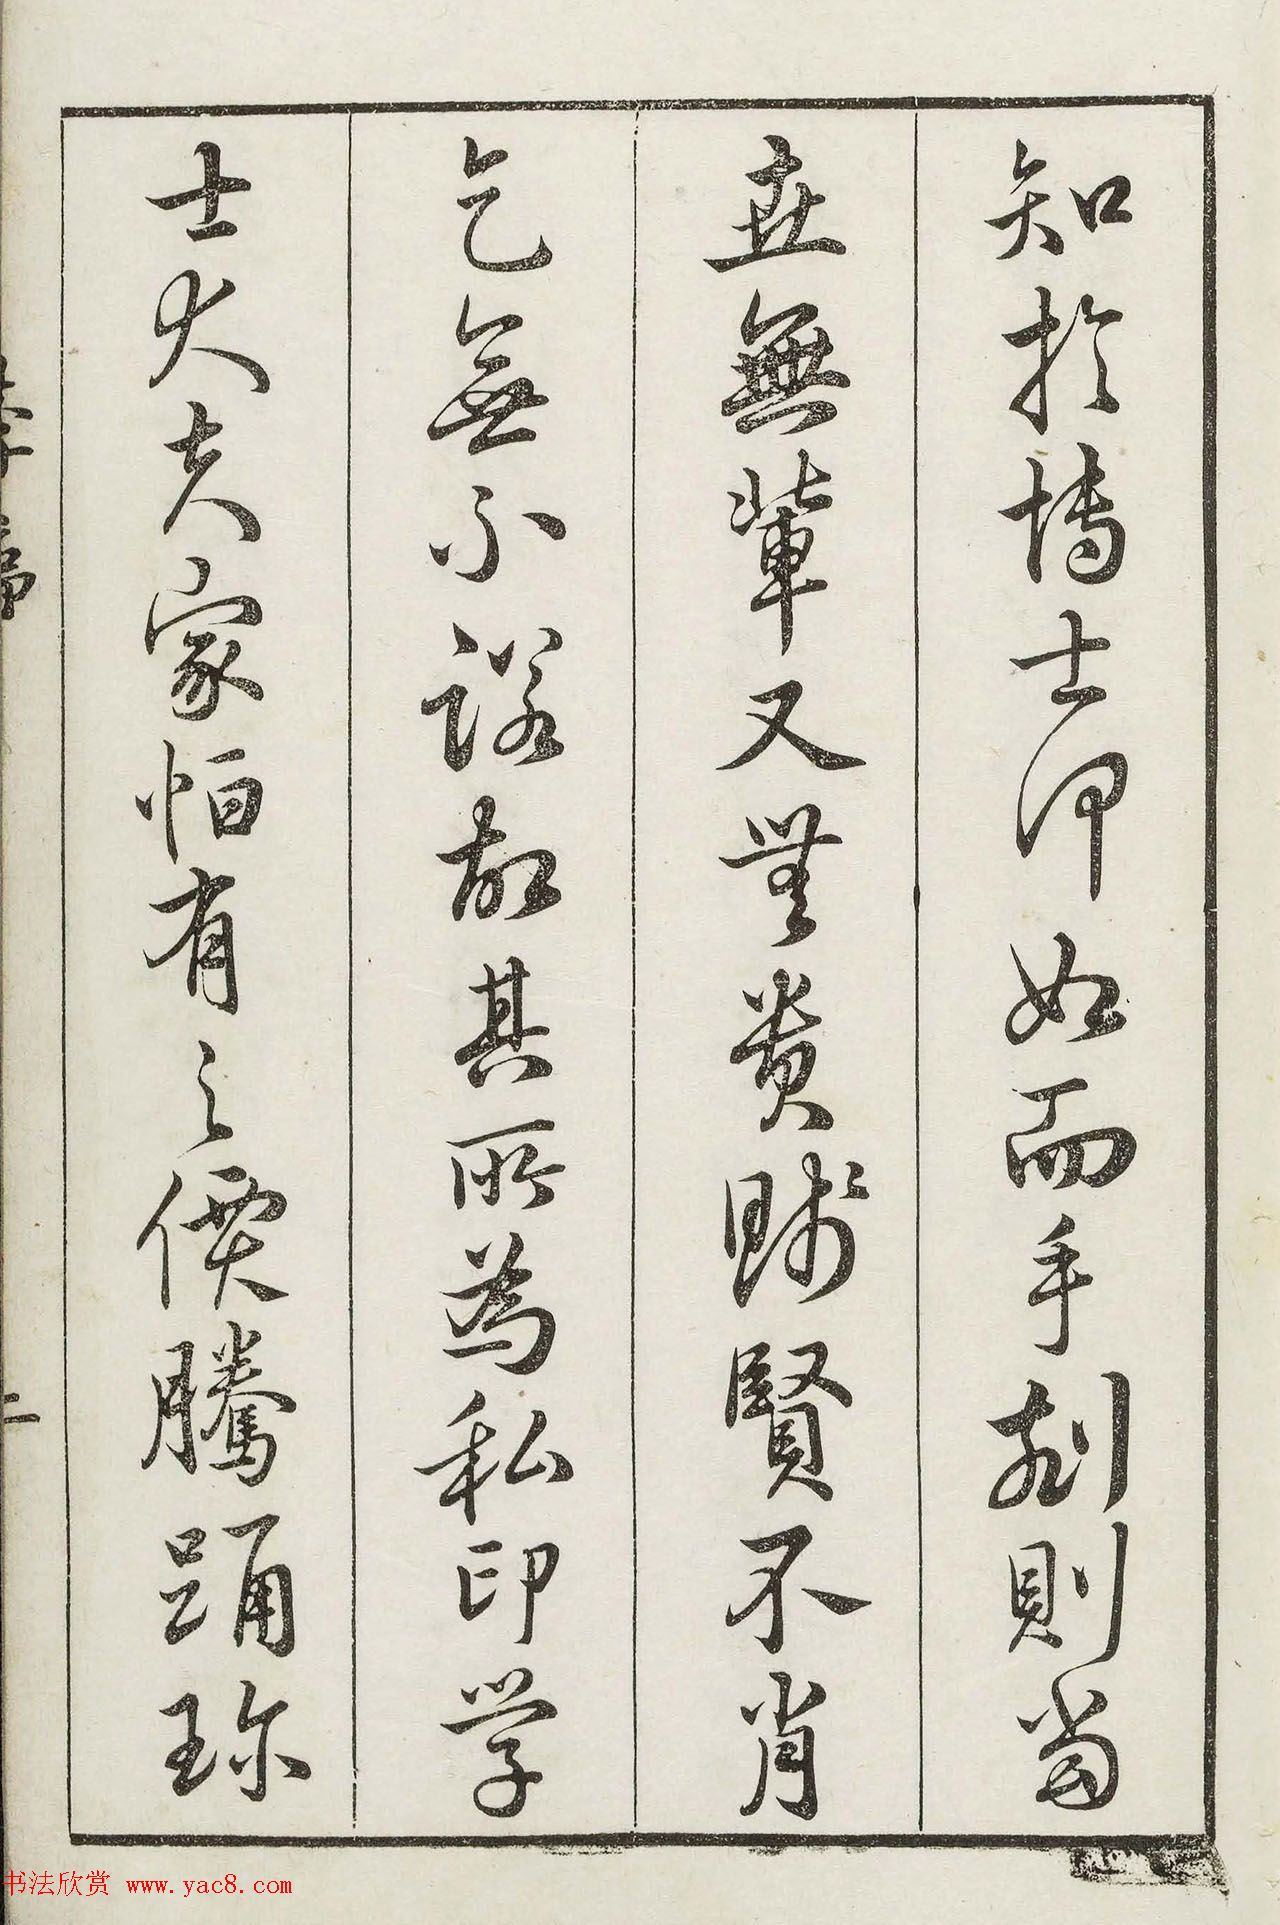 知於博士伊如而手刻則當
世無輩又無貴賤賢不肖
乞無不諾故其所為私印學
士大夫家怕有之價騰踊珍
二
书法欣赏 www.yac8.com